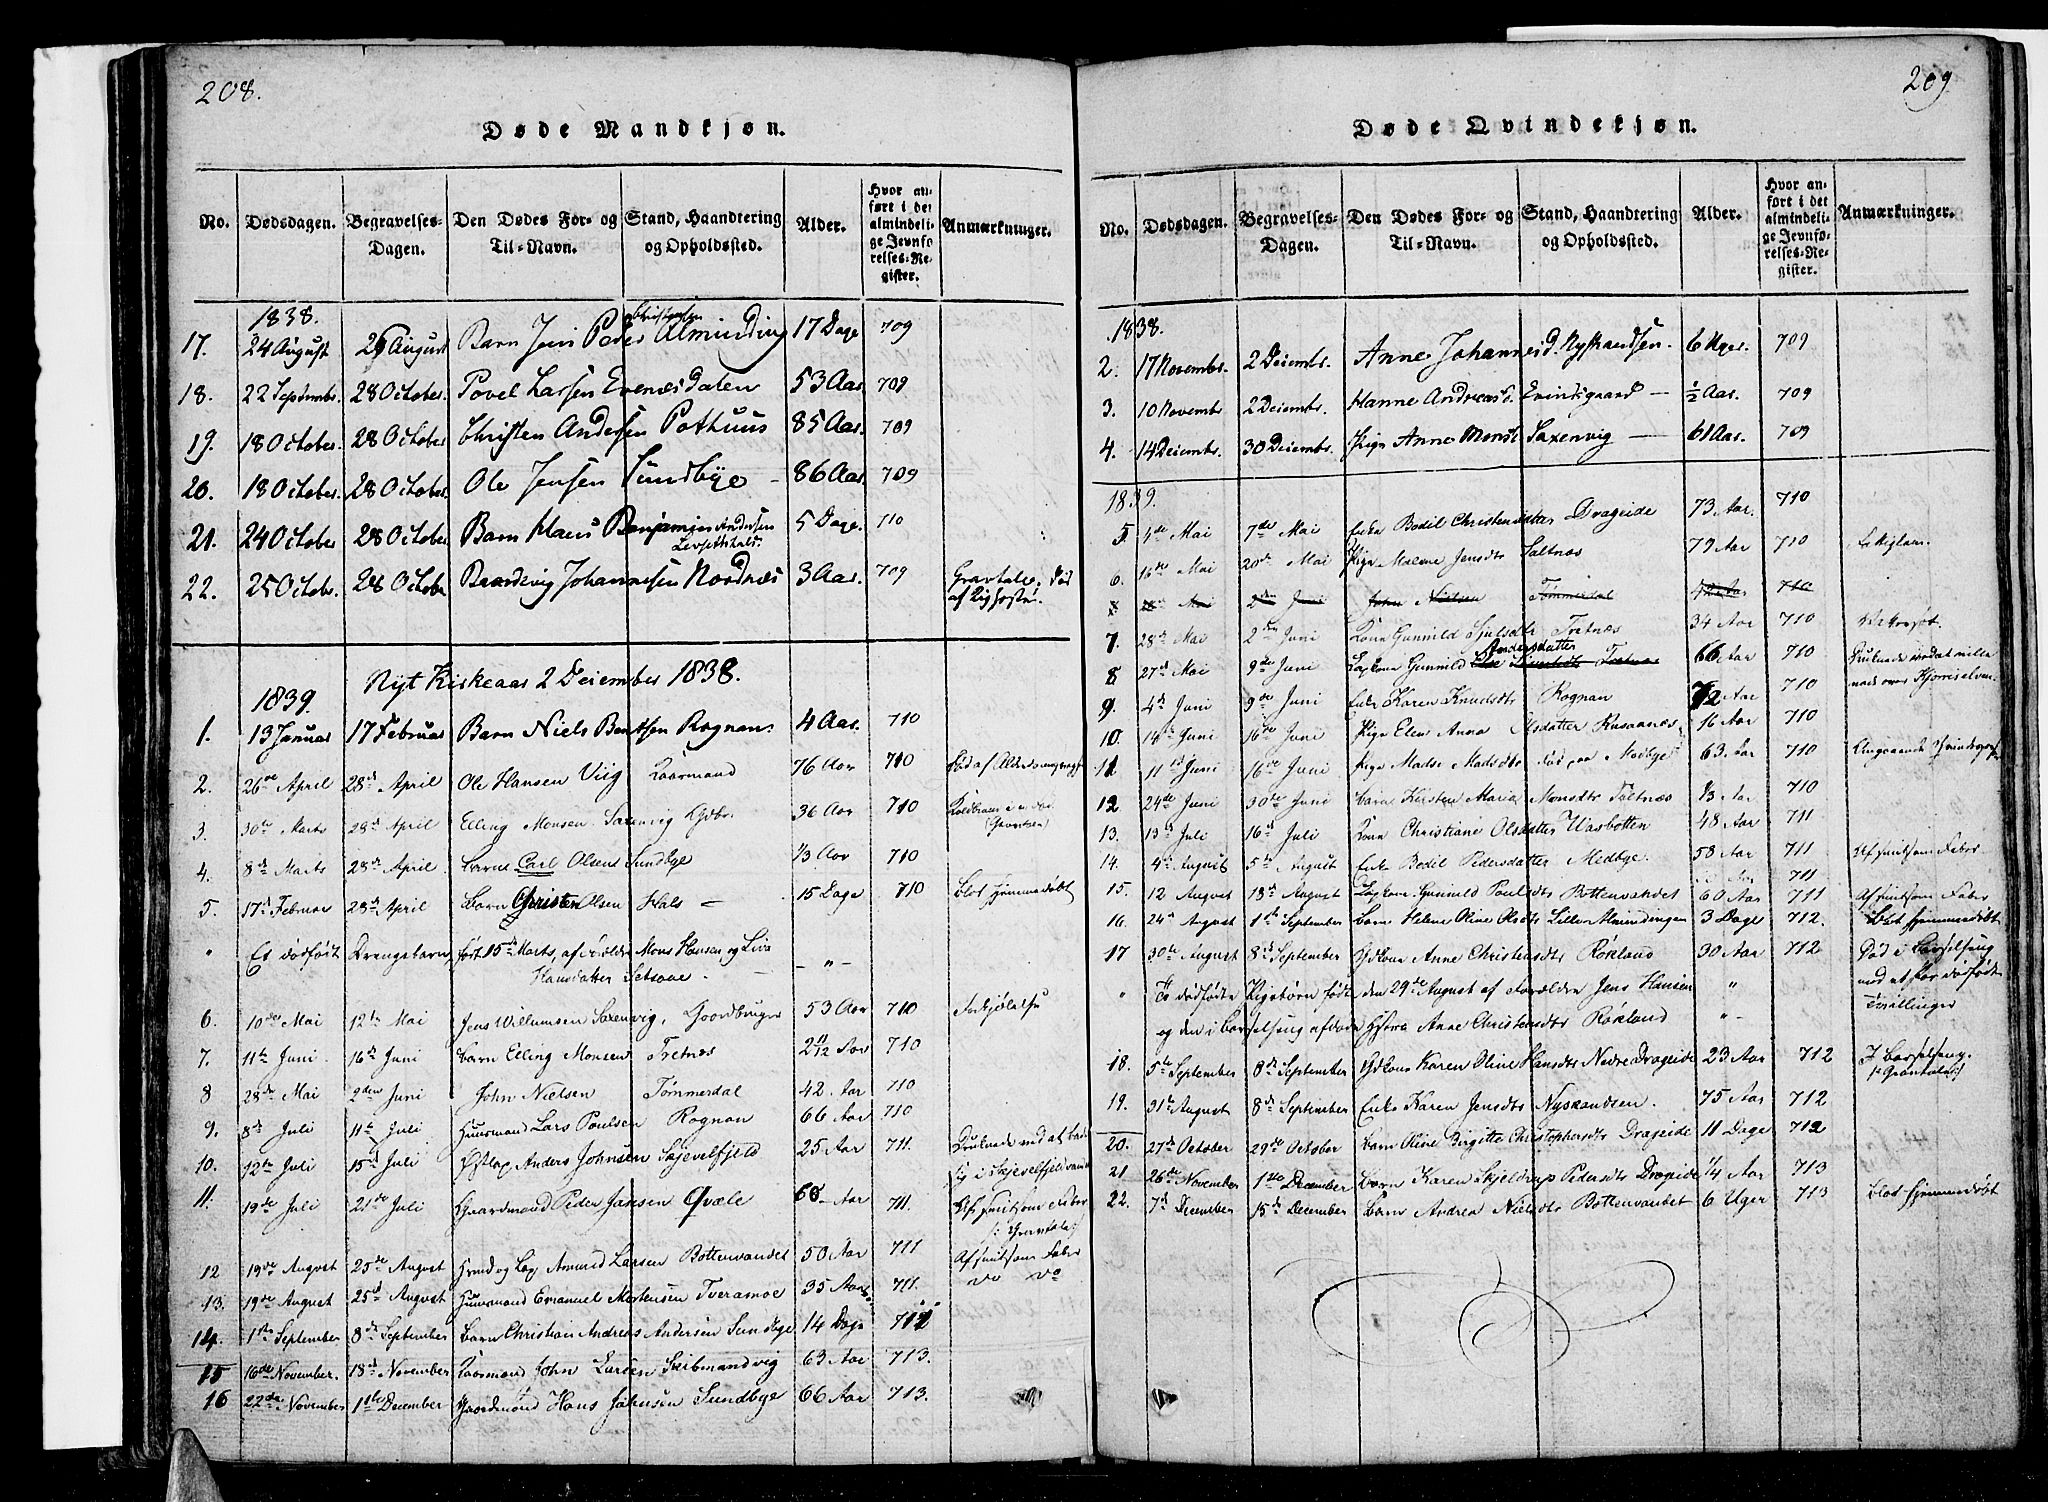 208.
Døde Mandkjøn.
No. Dødsdagen. Begravelses-Dagen. Den Dødes For- og Til-Navn. Stand, Haandtering og Opholdssted. Alder. Hvor anført i det almindelige Jevnførelses-Register. Anmærkninger.
1838. Christensen
17. 24 August 26 August Barn Jens Peder Alminding 17 Dage 709
18. 22 Septembr. 28 October. Povel Larsen Evenesdalen 53 Aar. 709
19. 18 October. 28 October Christen Andersen Pothuus 85 Aar. 709
20. 18 October. 28 October. Ole Jensen Sundbye - 86 Aar. 709
21. 24 October 28 October Barn Hans Benjamin Andersen 5 Dage. 710
22. 25 Octobr. 28 October Johannesen Nordnæs 3 Aar. 709 Gravtale. Død
af Kighoste.
Nyt Kirkeaar 2 Deiember 1838.
1839.
1. 13 Januar 17 Februar Barn Niels Bentsen Rognan. 4 Aar. 710
2. 26de April 28de April Ole Hansen Viig Kaarmand 76 Aar 710 Død af
3. 30te Marts 28de April Elling Monsen Saxenvig Gdbr. 36 Aar 710
4. 8de Marts 28de April Barnet Carl Olsen Sundbye 1/3 Aar 710
5. 17de Februar 28de April Barn Christen Olsen Hals - 15 Dage 710 Blot hjemmedøbt
" Et dødfødt Drengebarn, født 15de Marts, af Forældre Mons Hansen, og
Hansdatter Setsaae. -
- " -
6. 10de Mai 12te Mai Jens Willumsen Saxenvig, Gaardbruger 53 Aar 710 Forkjølelse
7. 11te Juni. 16de Juni Barn Elling Monsen Tretnæs 2 11/12 Aar 710
8 28de Mai 2den Juni John Nielsen Tømmerdal 42. Aar 710
9. 8de Juli 11te Juli Huusmand Lars Poulsen Rognan 66 Aar 710
10. 12te Juli 15de Juli Anders Johnsen Skjevelfjeld 25 Aar 711. Druknede ved at bade
sig i Skjevelfjeldvand
11. 19de Juli 21de Juli Gaardmand Peder Jansen Qvæle 66 Aar 711. Af smitsom Feber
(: Gravtale :)
12 19de August 25de August Amund Larsen Bottenvandet 50 Aar 711 Af smitsom Feber
13. 19de August 25de August Huusmand Emanuel Mortensen Tveraamoe 35 Aar 711. do do
14. 1ste September 8de September Barn Christian Andreas Andersen Sundbye 14 Dage 712
15 16de November. 18de November Kaarmand John Larsen Skibmandvig 63 Aar 713.
16 22de November 1ste December Gaardmand Hans Johnsen Sundbye 66 Aar 713.
209.
Døde Qvindekjøn.
No. Dødsdagen. Begravelses-Dagen. Den Dødes For- og Til-Navn. Stand, Haandtering og Opholdssted. Alder. Hvor anført i det almindelige Jevnførelses-Register. Anmærkninger.
1838.
2. 17 Novembr. 2 Deiembr. Anne Johannesd. Nystandsen. 6 Uger. 709
3. 10 Novembr 2 Deiembr. Hanne Andreasd. Evindsgaard - 1/2 Aar. 709
4. 14 Deiembr. 30 Deiembr. Pige Anne Monsd. Saxenvig - 61 Aar. 709
1839.
5. 1de Mai 7de Mai Enke Bodil Christensdatter Drageide 73 Aar. 710
6. 16de Mai 20de Mai Pige Malene Jensdtr Saltnæs 79 Aar 710
Mai 2den Juni John Nielsen Tømmerdal 710
7. 28de Mai 2den Juni Kone Gunnild Sjulsdtr Tretnæs 34 Aar 710
8 27de Mai 9de Juni Gunnild Andersdatter 66 Aar 710
9. 4de Juni 9de Juni Enke Karen Knudsdtr Rognan 72 Aar 710
10. 14de Juni 16de Juni Pige Elen Anna Olsdatter Rusaanæs 16 Aar 710
11 11te Juni 16de Juni Pige Madse Madsdtr død paa Medbye 63. Aar 710
12 24de Juni 30te Juni Barn Kirsten Marie Monsdtr Toltnæs 710
13. 13de Juli 16de Juli Kone Christiane Olsdatter Wasbotten 48 Aar 711
14. 4de August 5te August Enke Bodil Pedersdatter Medbye. 58 Aar 711 Af smitsom Feber
711
15. 12 August 18de August Gunnild Poulsdtr Bottenvandet 60 Aar 711 Af smitsom Feber
16. 24de August 1ste September Barn Helene Oline Olsdtr Lille Almindingen 3 Dage 712. Blot hjemmedøbt
17 30te August 8de September Anne Christensdtr Røkland 30 Aar 712 Død i Barselseng
ved at før dødfødte
Tvillinger
" To dødfødte Pigebørn født den 29de August af Forældre Jens Hansen "
og den i Barselseng afdøde Hustru Anne Christensdtr Røkland "-
18. 5te September 8de September Karen Oline Hansdtr Nedre Drageide 23 Aar 712 I Barselseng.
(: Gravtale :)
19. 31te August 8de September Enke Karen Jensdtr Nystandsen. 75 Aar 712
20. 27de October 29de October Barn Oline Birgitte Christophersdtr Drageide 11 Dage 712
21 26de November 1ste December Barn Karen Skjeldrup Pedersdtr Drageide 1/4 Aar 713
22. 7de December 15de December Barn Andrea Nielsdtr Bottenvandet 6 Uger 713 Blot hjemmedøbt